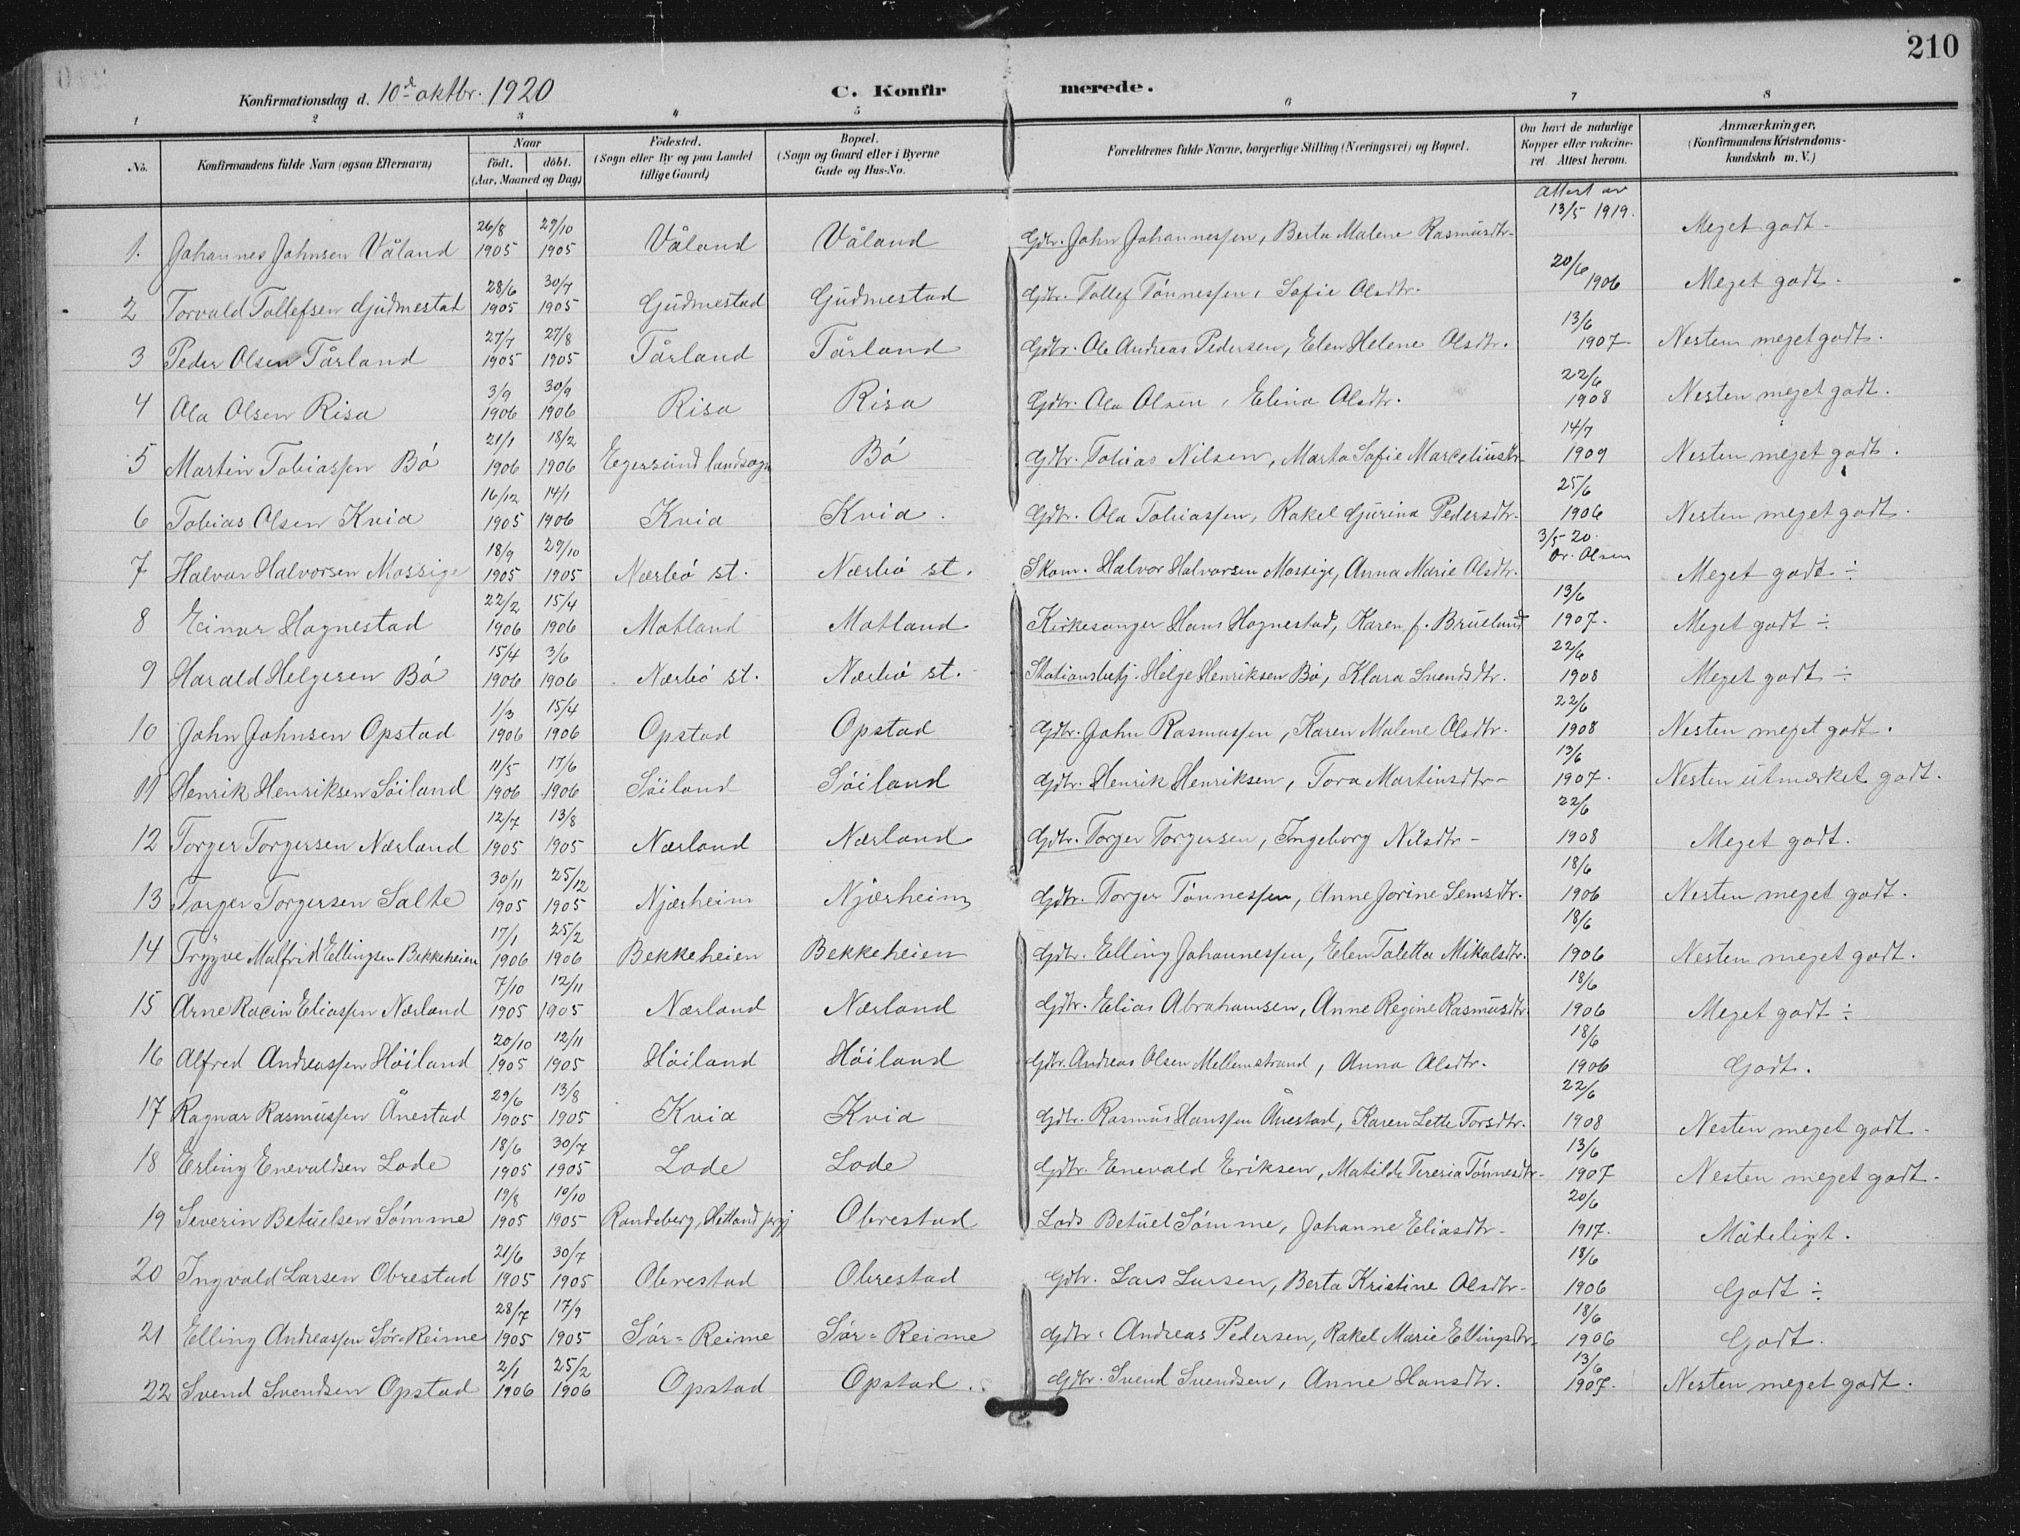 210
Konfirmationsdag d. 10de oktbr. 1920 C. Konfirmerede.
1 2 3 4 5 6 7 8
No. Konfirmandens fulde Navn (ogsaa Efternavn) Naar födt. döbt. (Aar, Maaned og Dag) Födested. (Sogn eller By og paa Landet tillige Gaard) Bopæl. (Sogn og Gaard eller i Byerne Gade og Hus-No. Forældrenes fulde Navne, borgerlige Stilling (Næringsvei) og Bopæl. Om havt de naturlige Kopper eller vakcineret. Attest herom. Anmærkninger, (Konfirmandens Kristendomskundskab m. V.)
1. Johannes Johnsen Våland 26/8 1905 29/10 1905 Våland Våland Gdbr. John Johannessen, Berta Malene Rasmusdtr. Attest av 13/5 1919. Meget godt -
2 Torvald Tollefsen Gudmestad 28/6 1905 30/7 1905 Gudmestad Gudmestad Gdbr. Tollef Tønnessen, Sofie Olsdtr. 20/6 1906 Meget godt -
3 Peder Olsen Tårland 27/7 1905 27/8 1905 Tårland Tårland Gdbr. Ole Andreas Pedersen, Elen Helene Olsdtr. 13/6 1907- Nesten meget godt.
4 Ola Olsen Risa 3/9 1906 30/9 1906 Risa Risa Gdbr. Ola Olsen, Elina Olsdtr. 22/6 1908 Nesten meget godt.
5 Martin Tobiassen Bø 21/1 1906 18/2 1906 Egersund landsogn Bø Gdbr. Tobias Nilsen, Marta Sofie Marceliusdtr- 14/7 1909 Nesten meget godt.
6 Tobias Olsen Kvia 16/12 1905 14/1 1906 Kvia Kvia. Gdbr. Ola Tobiassen, Rakel Gurina Pedersdtr- 25/6 1906 Nesten meget godt.
7 Halvar Halvorsen Mossige 18/9 1905 29/10 1905 Nærbø st. Nærbø st. Skom. Halvor Halvorsen Mossige, Anna Marie Olsdtr. 3/5-20. Dr. Olsen Meget godt ÷
8 Einar Hognestad 22/2 1906 15/4 1906 Motland Motland Kirkesanger Hans Hognestad, Karen f. Brueland 13/6 1907. Meget godt ÷
9 Harald Helgesen Bø 15/4 1906 3/6 1906 Nærbø st. Nærbø st. Stationsbetj. Helge Henriksen Bø, Klara Svendsdtr. 22/6 1908 Meget godt ÷
10 John Johnsen Opstad 1/3 1906 15/4 1906 Opstad Opstad Gdbr. John Rasmussen, Karen Malene Olsdtr. 22/6 1908 Nesten meget godt.
11 Henrik Henriksen Søiland 11/5 1906 17/6 1906 Søiland Søiland Gdbr. Henrik Henriksen, Tora Martinsdtr- 13/6 1907. Nesten utmærket godt.
12 Torger Torgersen Nærland 12/7 1905 13/8 1905 Nærland Nærland Gdbr. Torger Torgersen, Ingeborg Nilsdtr- 22/6 1908 Meget godt.
13 Torger Torgersen Salte 30/11 1905 25/12 1905 Njærheim Njærheim Gdbr. Torger Tønnessen, Anne Jorine Semsdtr. 18/6 1906 Nesten meget godt.
14 Trygve Malfrid Ellingsen Bekkeheien 17/1 1906 25/2 1906 Bekkeheien Bekkeheien Gdbr. Elling Johannessen, Elen Taletta Mikalsdtr. 18/6 1906 Nesten meget godt.
15 Arne Racin Eliassen Nærland 7/10 1905 12/11 1905 Nærland Nærland Gdbr. Elias Abrahamsen, Anne Regine Rasmusdtr. 18/6 1906 Meget godt ÷
16 Alfred Andreassen Høiland 20/10 1905 12/11 1905 Høiland Høiland Gdbr. Andreas Olsen Mellemstrand, Anna Olsdtr. 18/6 1906 Godt.
17 Ragnar Rasmussen Ånestad 29/6 1905 13/8 1905 Kvia Kvia Gdbr. Rasmus Hanssen Ånestad, Karen Lette Torsdtr. 22/6 1908 Nesten meget godt -
18 Erling Enevaldsen Lode 18/6 1905 30/7 1905 Lode Lode Gdbr. Enevald Eriksen, Matilde Teresia Tønnesdtr- 13/6 1907 Nesten meget godt.
19 Severin Betuelsen Sømme 19/8 1905 10/10 1905 Randeberg, Hetland Obrestad Lods Betuel Sømme, Johanne Eliasdtr- 20/6 1917. Mådeligt.
20 Ingvald Larsen Obrestad 21/6 1905 30/7 1905 Obrestad Obrestad Gdbr. Lars Larsen, Berta Kristine Olsdtr- 18/6 1906 Godt ÷
21 Elling Andreassen Sør-Reime 28/7 1905 17/9 1905 Sør=Reime Sør=Reime Gdbr. Andreas Pedersen, Rakel Marie Ellingsdtr- 18/6 1906 Godt.
22 Svend Svendsen Opstad 2/1 1906 25/2 1906 Opstad Opstad. Gdbr. Svend Svendsen, Anne Hansdtr. 13/6 1907. Nesten meget godt.